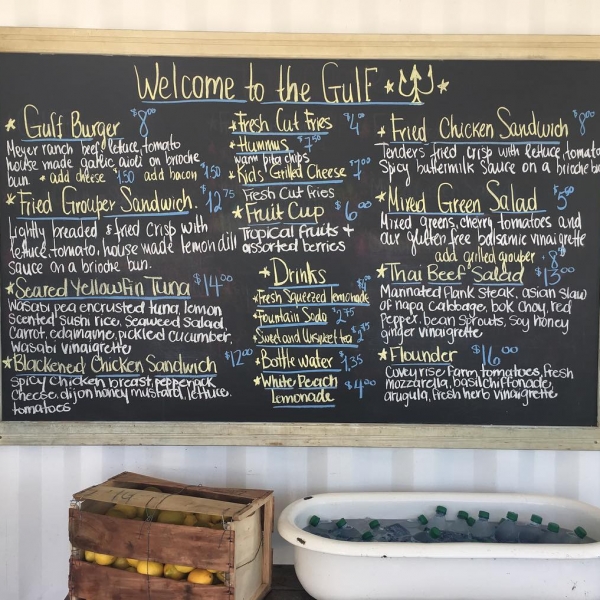 Welcome to the Gulf
Gulf Burger $8.00
Meyer ranch beef, lettuce, tomato
house made garlic aioli on brioche
bun. * add cheese $1.50 add bacon $1.50
Fried Grouper Sandwich. $12.75
Lightly breaded & fried crisp with
lettuce, tomato, house made lemon dill
sauce on a brioche bun.
Seared Yellowfin Tuna $14.00
Wasabi pea encrusted tuna, lemon
scented sushi rice, seaweed salad,
carrot, edamame, pickled cucumber,
wasabi vinaigrette
Blackened Chicken Sandwich $12.00
spicy chicken breast, pepperjack
cheese, dijon honey mustard, lettuce,
tomatoes
Fresh Cut Fries $4.00
Hummus $7.50
warm pita chips
Kids' Grilled Cheese $7.00
Fresh Cut Fries
Fruit Cup $6.00
Tropical fruits +
assorted berries
Drinks
Fresh Squeezed lemonade
Fountain Soda $2.75
Sweet and Unsweet tea
Bottle water $1.35
White Peach $4.00
lemonade
Fried Chicken Sandwich 8.00
Tenders fried crisp with lettuce, tomato
Spicy buttermilk sauce on a brioche
Mixed Green Salad
Mixed greens, cherry tomatoes and
our gluten free balsamic vinaigrette
add grilled grouper
Thai Beef Salad $13.00
Marinated flank steak, asian slaw
of napa cabbage, bok choy, red
pepper, bean sprouts, soy honey
ginger vinaigrette
Flounder $16.00
Covey rise Farm tomatoes, fresh
mozzarella, basil chiffonade,
arugula, fresh herb vinaigrette